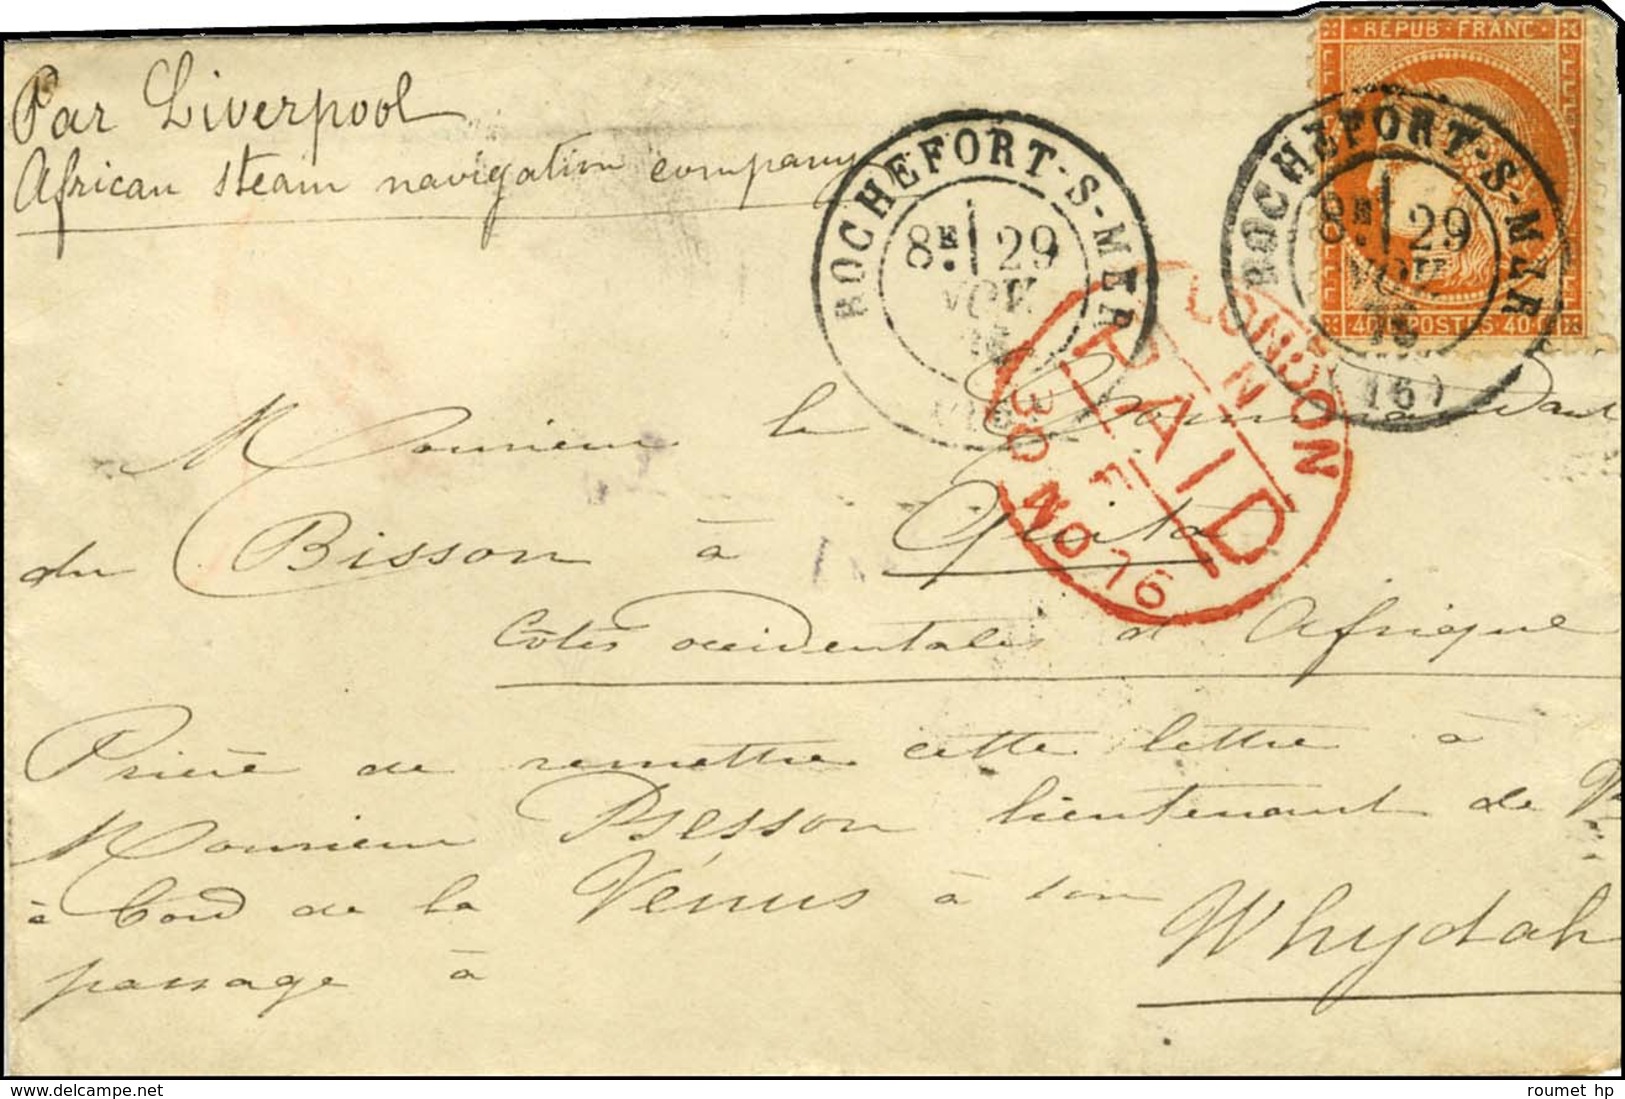 REPUB · FRANC
Par Liverpool
African steam navigation company
ROCHEFORT-S-MER
8E 29
NOV.
ROCHEFORT-S-MER
8E 29
NOV.
76
(16)
40 C POSTES 40 C
LONDON
PAID
30 NO 76
Monsieur le Commandant
du Bisson à Quita
Côtes occidentales d'Afrique
Prière de remettre cette lettre à
Monsieur Besson lieutenant de Vau
à bord de la Vénus à son
passage à
Whydah
roumet hp